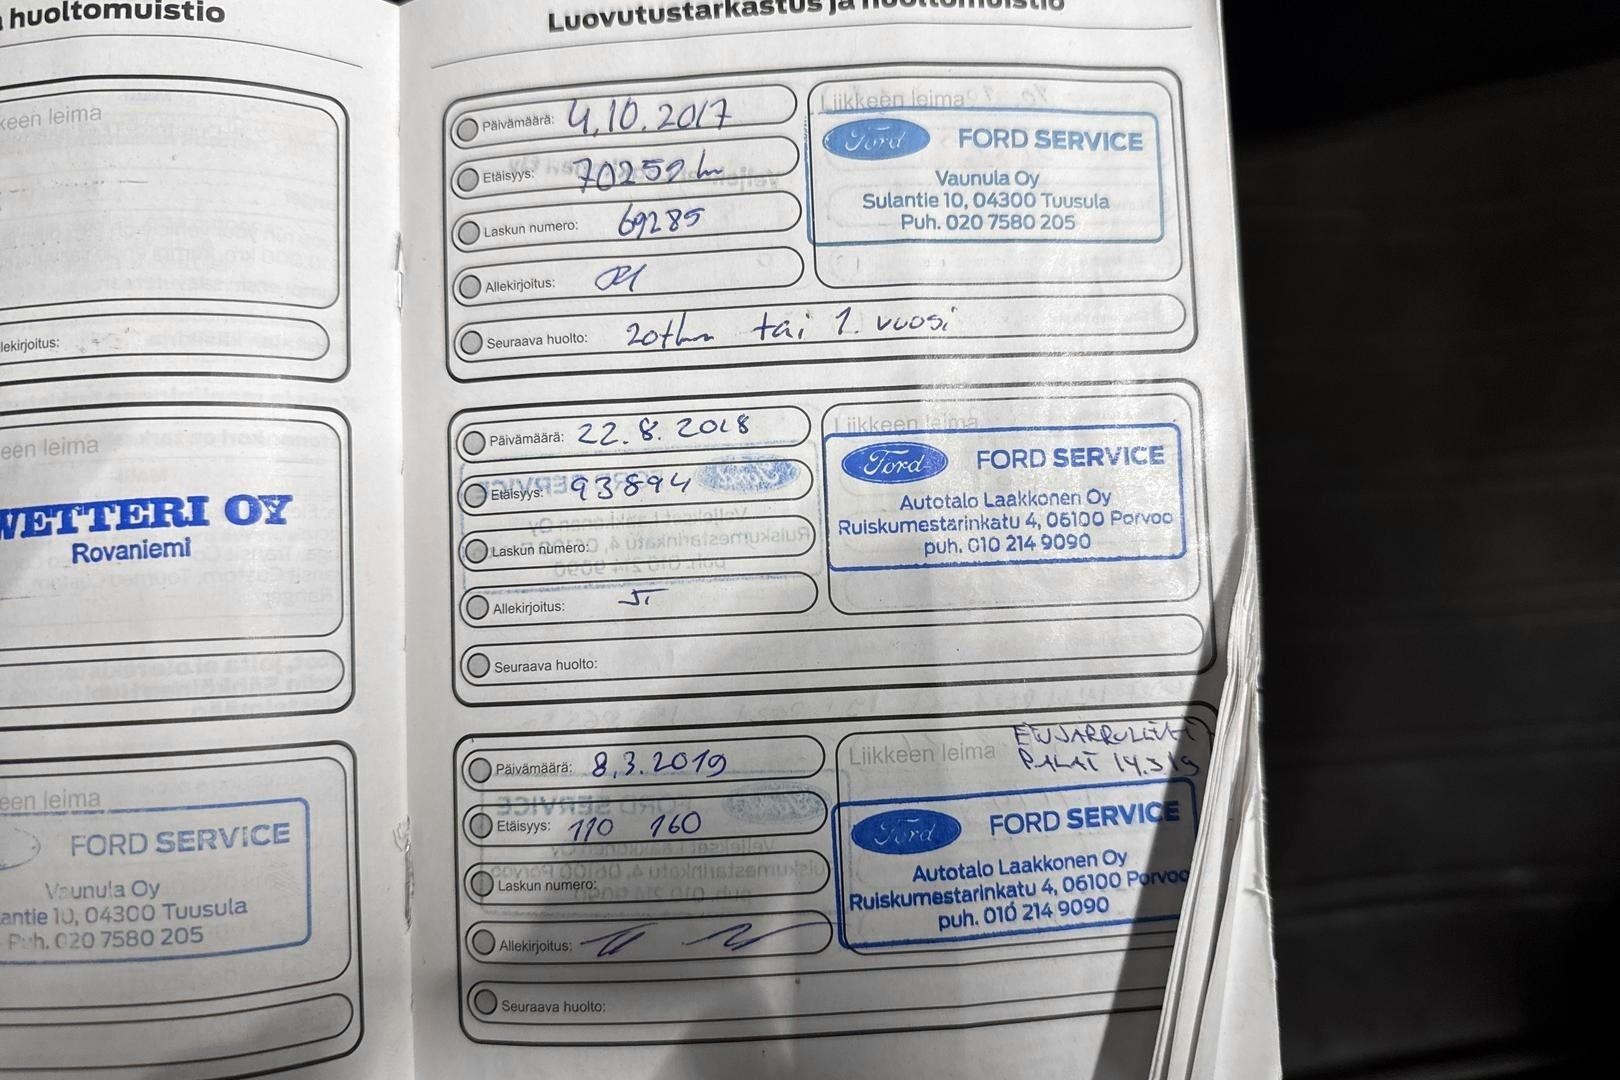 huoltomuistio
keen leima
lekirjoitus:
een leima
WETTERI OY
Rovaniemi
een leima
FORD SERVICE
Vaunula Oy
antie 10, 04300 Tuusula
Puh. 020 7580 205
Luovutustarkastus ja huoltomuistio
Päivämäärä: 4.10.2017
Etäisyys: 70259 km
Laskun numero: 69285
Allekirjoitus:
Seuraava huolto: 20tkm tai 1. vuosi
Liikkeen leima
Ford FORD SERVICE
Vaunula Oy
Sulantie 10, 04300 Tuusula
Puh. 020 7580 205
Päivämäärä: 22.8.2018
Etäisyys: 93894
Laskun numero:
Allekirjoitus:
Seuraava huolto:
Liikkeen leima
Ford FORD SERVICE
Autotalo Laakkonen Oy
Ruiskumestarinkatu 4, 06100 Porvoo
puh. 010 214 9090
Päivämäärä: 8.3.2019
Etäisyys: 110 160
Laskun numero:
Allekirjoitus:
Seuraava huolto:
Liikkeen leima
PALAT 14.3.19
Ford FORD SERVICE
Autotalo Laakkonen Oy
Ruiskumestarinkatu 4, 06100 Porvoo
puh. 010 214 9090